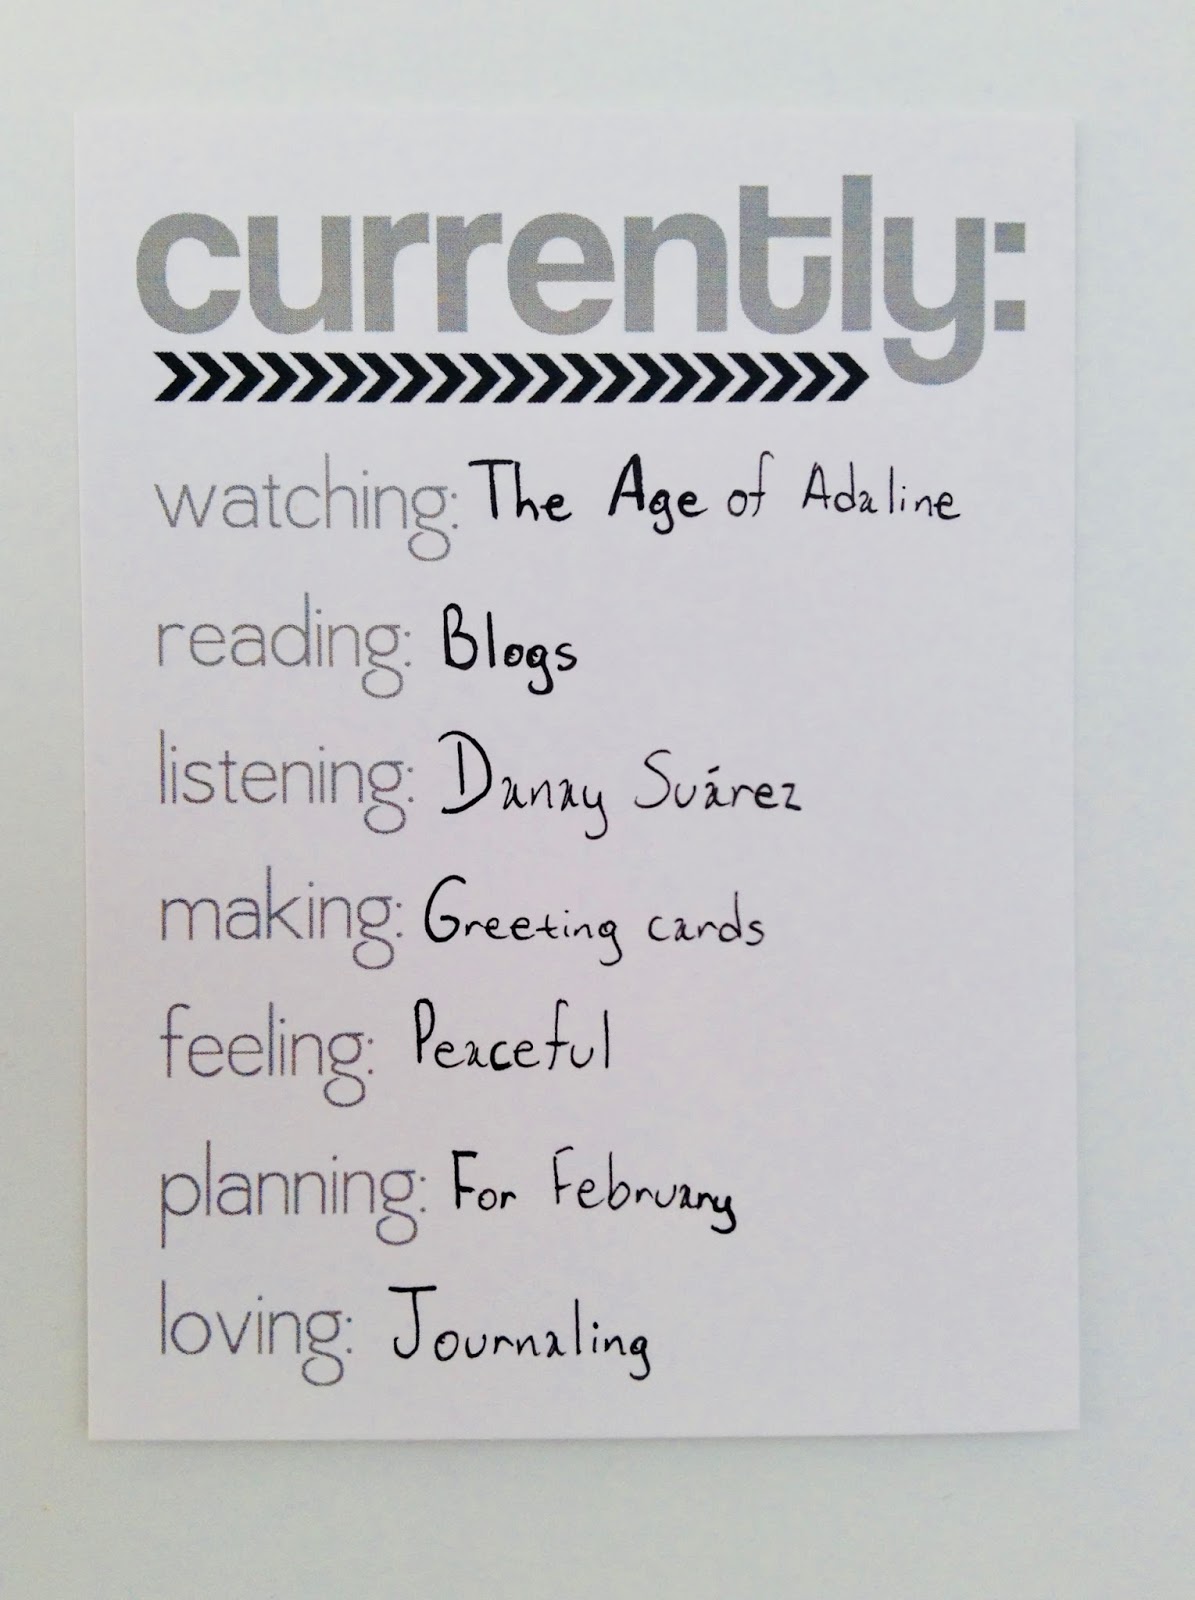 currently:
watching: The Age of Adaline
reading: Blogs
listening: Danay Suárez
making: Greeting cards
feeling: Peaceful
planning: For February
loving: Journaling